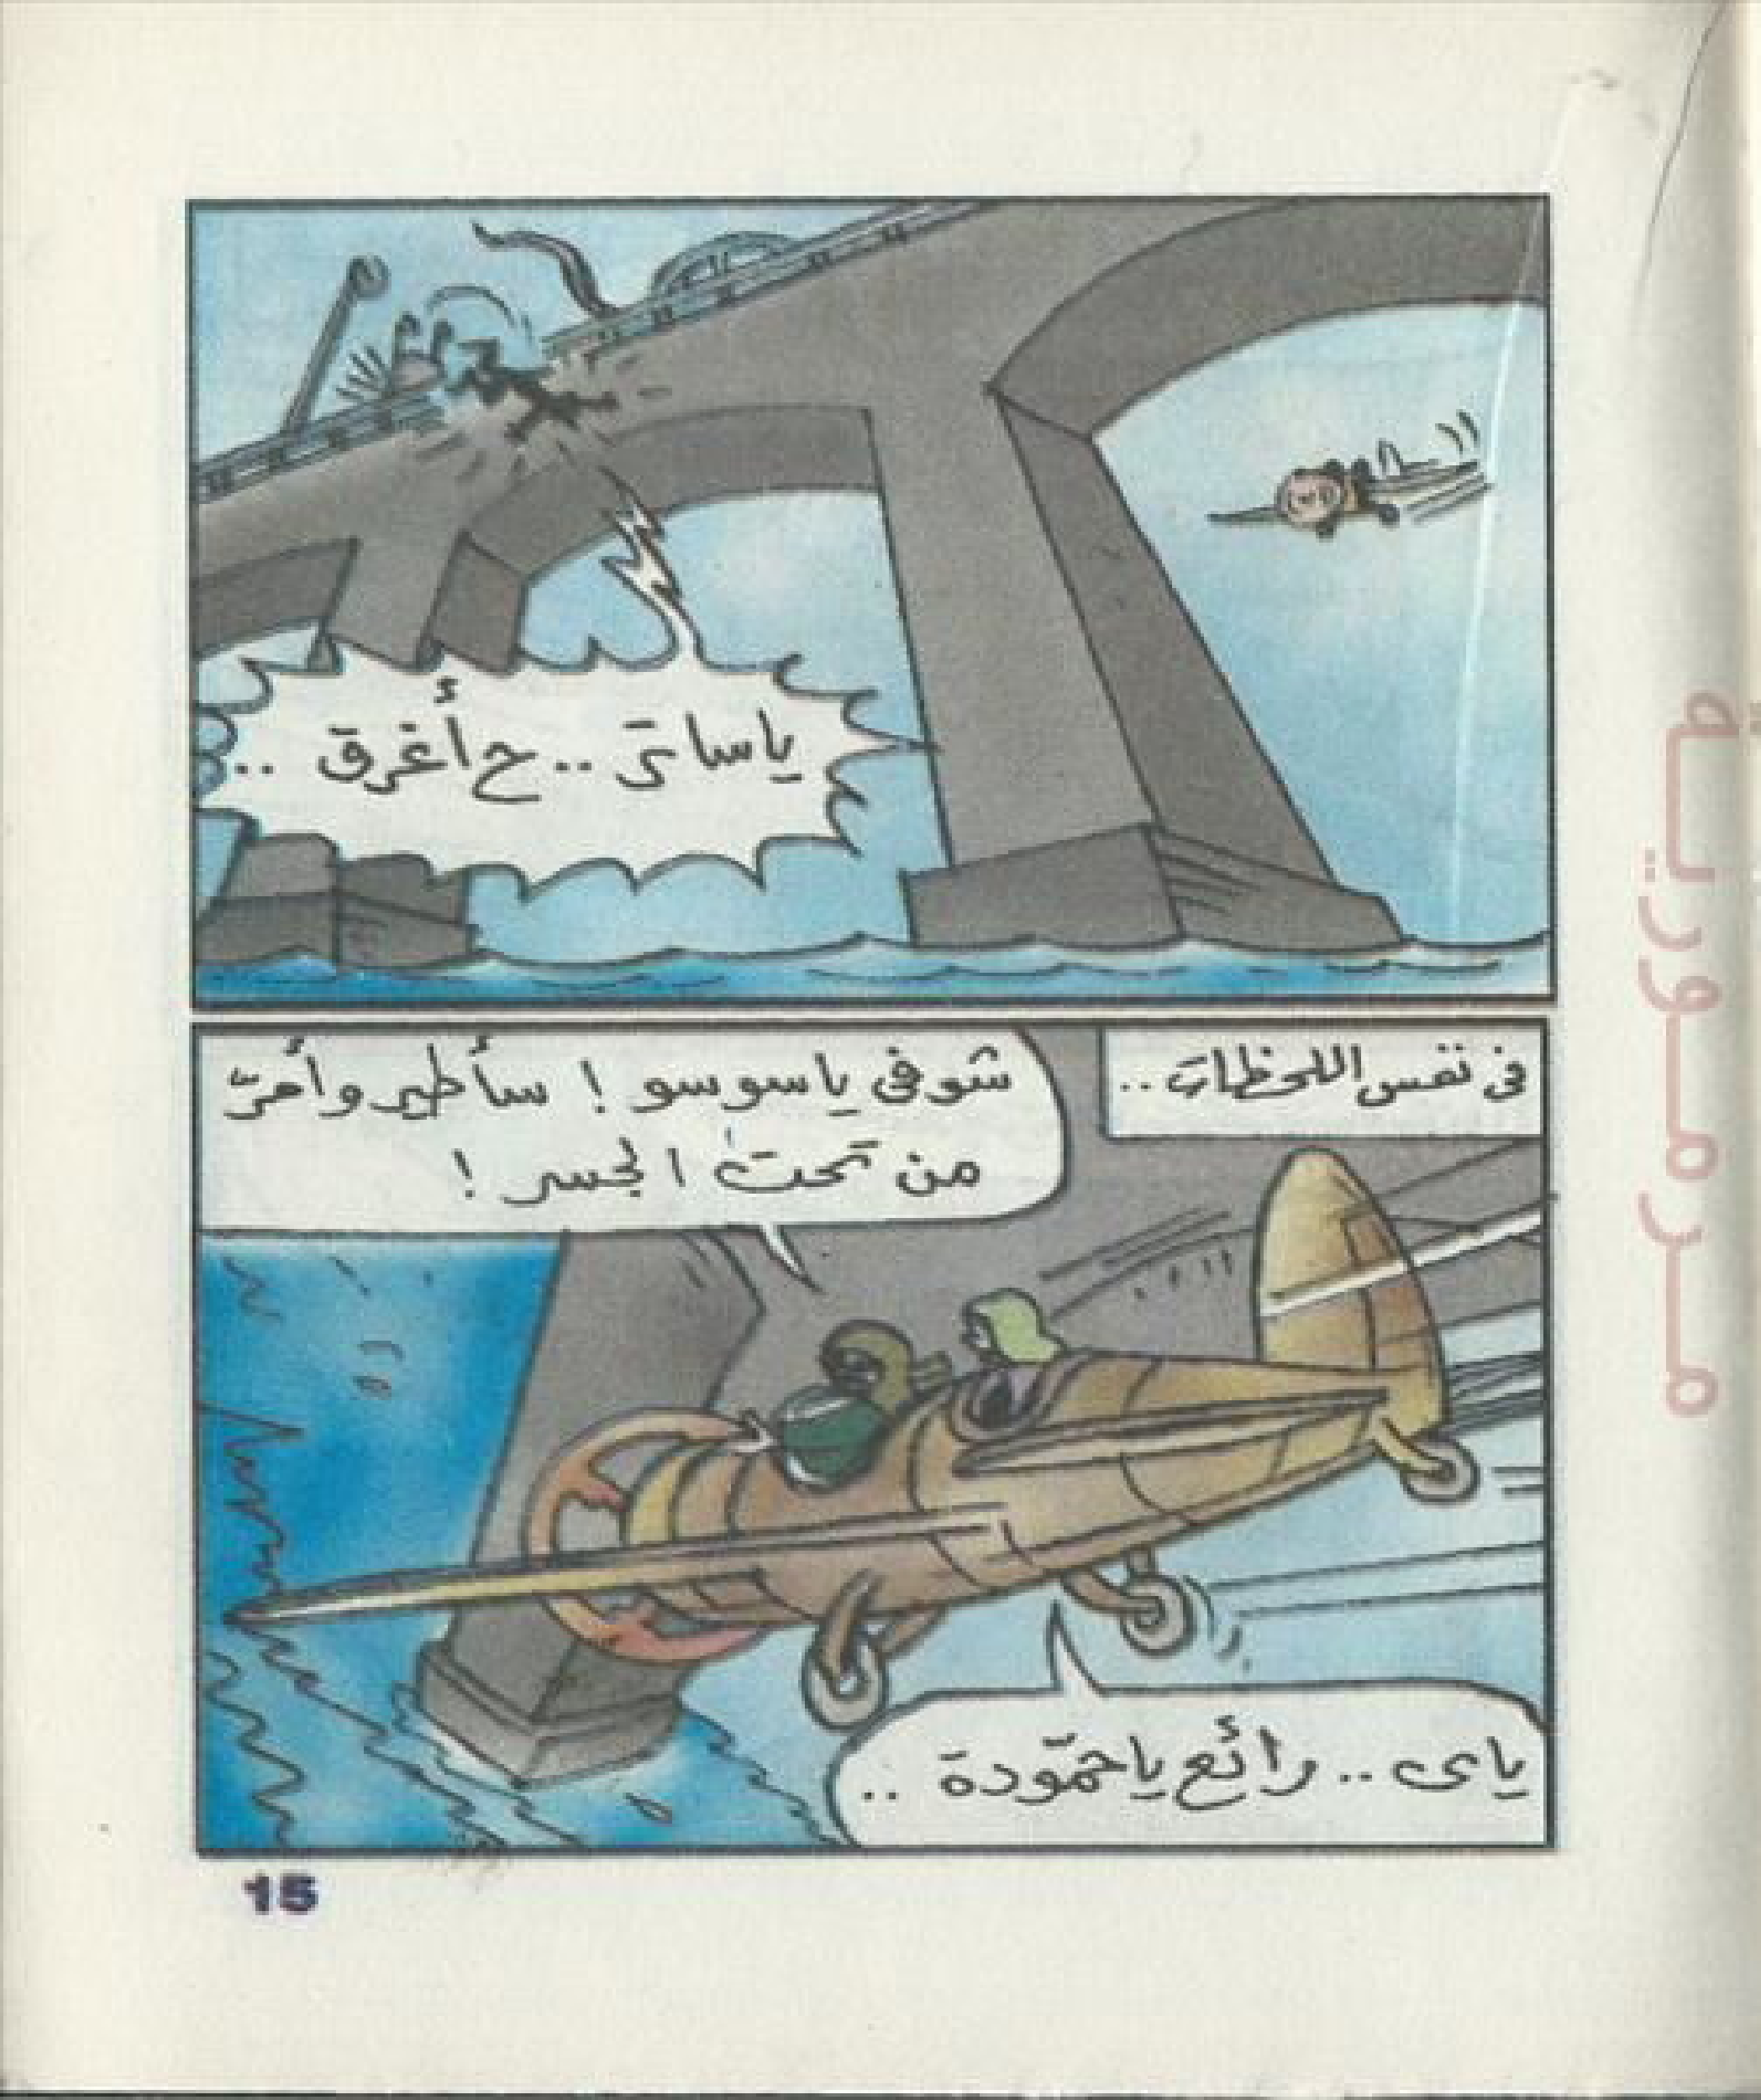 ياساتر .. ح أغرق ..
فى نفس اللحظات ..
شوفى ياسوسو ! سأطير وأمرّ
من تحت الجسر !
ياى .. رائع ياحمّودة ..
15
مرمورية